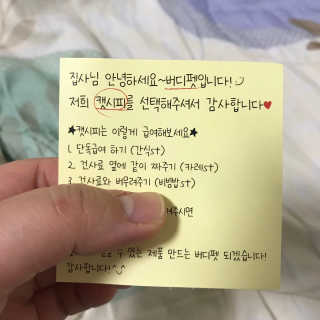 집사님 안녕하세요~버디펫입니다!
저희 캣시피를 선택해주셔서 감사합니다♥
★캣시피는 이렇게 급여해보세요★
1. 단독급여 하기 (간식st)
2. 건사료 옆에 같이 짜주기 (카레st)
3. 건사료와 버무려주기 (비빔밥st)
겨주시면
수 있는 제품 만드는 버디펫 되겠습니다!
감사합니다!